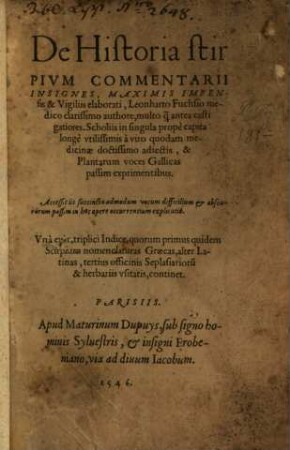 De Historia stir
PIVM COMMENTARII
INSIGNES, MAXIMIS IMPEN-
sis & Vigiliis elaborati, Leonharto Fuchsio me
dico clarissimo authore, multo q̃ antea casti
gatiores. Scholiis in singula propè capita
longè vtilissimis à viro quodam me-
dicinæ doctissimo adiectis, &
Plantarum voces Gallicas
passim exprimentibus.
Accessit iis succincta admodum vocum difficilium & obscu-
rarum passim in hoc opere occurrentium explicatio.
Vnà cum triplici Indice, quorum primus quidem
Stirpium nomenclaturas Græcas, alter La-
tinas, tertius officinis Seplasiariorũ
& herbariis vsitatas, continet.
PARISIIS.
Apud Maturinum Dupuys, sub signo ho-
minis Syluestris, & insigni Frobe-
niano, via ad diuum Iacobum.
1546.